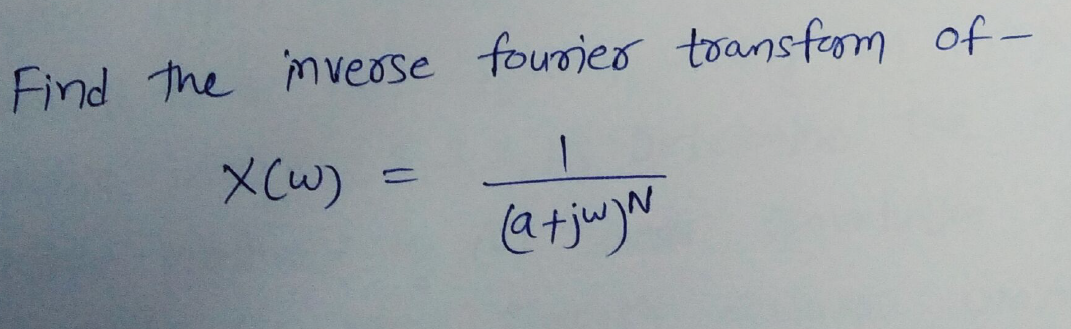 Find the inverse fourier transform of -
X(ω) = 1/(a+jω)^N